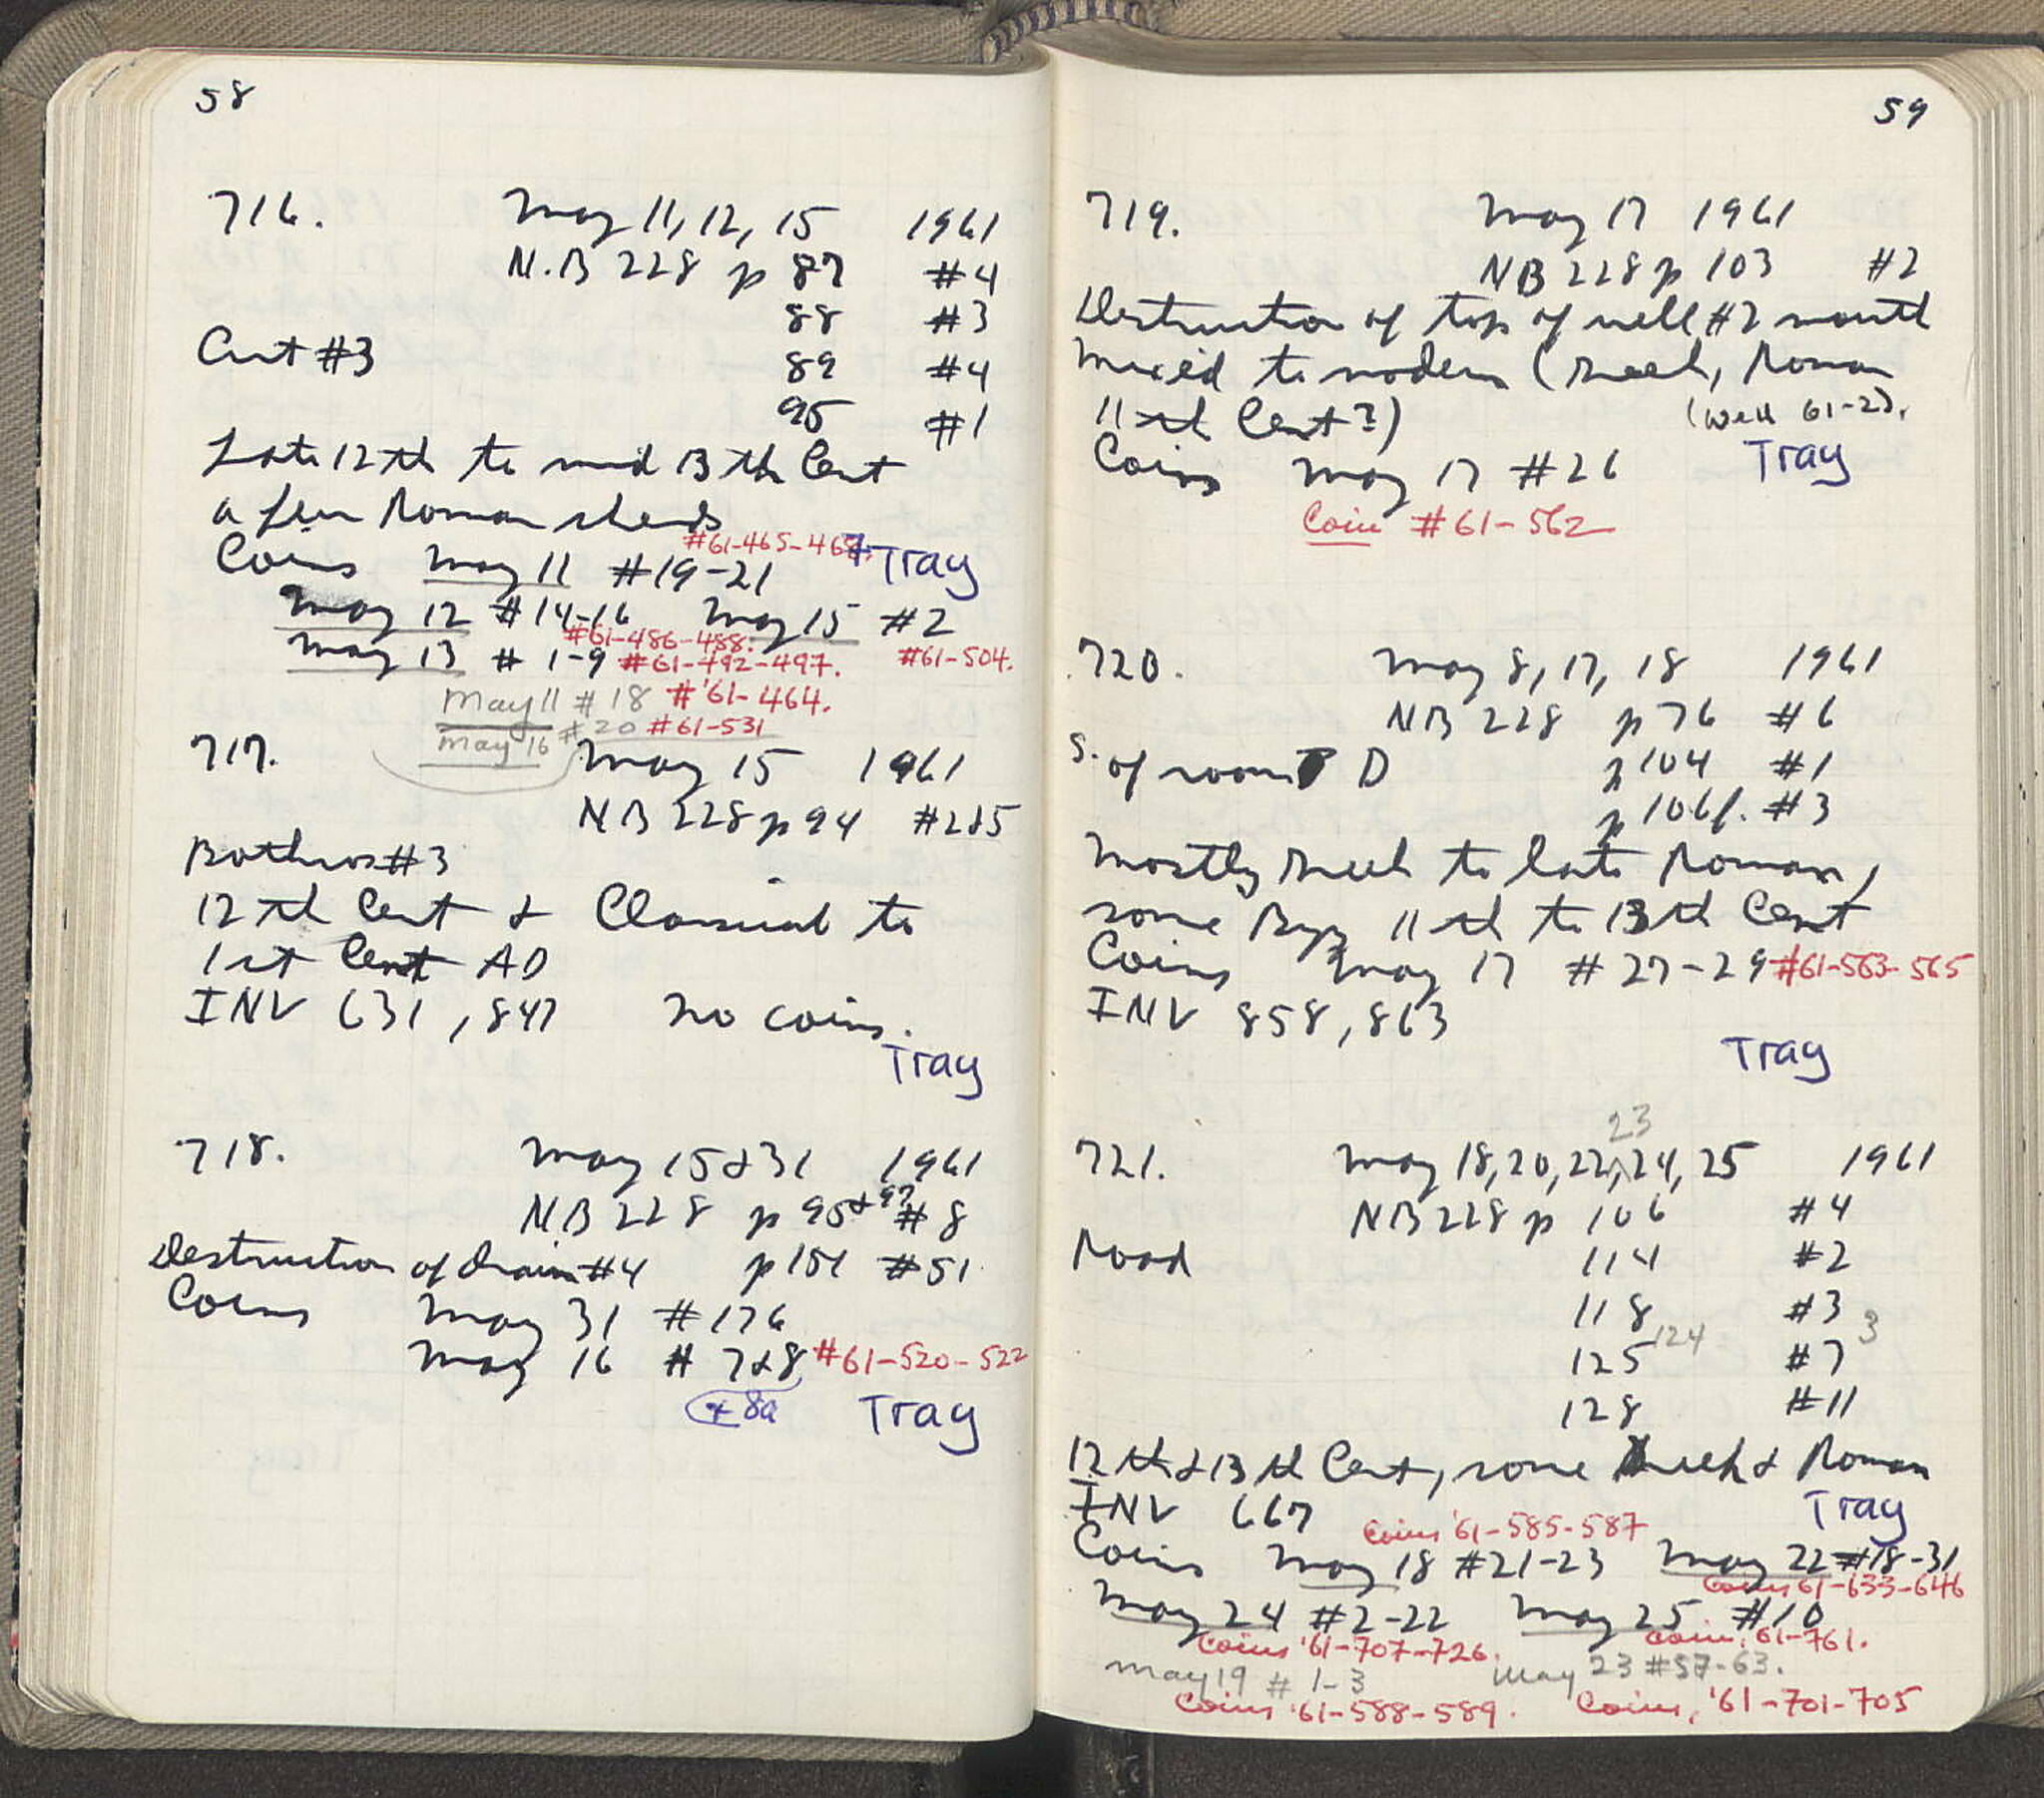 58
716. May 11, 12, 15 1961
N.B 228 p 87 #4
88 #3
Cut #3 89 #4
95 #1
Late 12th to mid 13th Cent
a few Roman sherds
#61-465-467. + Tray
Coins May 11 #19-21
May 12 #14-16 May 15 #2
#61-486-488.
May 13 # 1-9 #61-492-497. #61-504.
May 11 # 18 #'61-464.
May 16 #20 #61-531
717. May 15 1961
NB 228 p 94 #2&5
Bothros #3
12th Cent & Classical to
1st Cent AD
INV 631, 847 no coins.
Tray
718. May 15&31 1961
NB 228 p 95&97 #8
Destruction of drain #4 p151 #51
Coins May 31 #176
May 16 # 7&8 #61-520-522
+ 8a Tray
59
719. May 17 1961
NB 228 p 103 #2
Destruction of top of well #2 mouth
Mixed to modern (Greek, Roman
11th Cent?) (well 61-2).
Coins May 17 #26 Tray
Coin #61-562
720. May 8, 17, 18 1961
NB 228 p 76 #6
S. of room D p104 #1
p106f. #3
Mostly Greek to late Roman,
some Byz 11th to 13th Cent
Coins May 17 #27-29 #61-563-565
INV 858, 863
Tray
23
721. May 18, 20, 22, 24, 25 1961
NB 228 p 106 #4
Road 114 #2
118 #3
124 3
125 #7
128 #11
12th & 13th Cent, some Greek & Roman
INV 667 Tray
Coins '61-585-587
Coins May 18 #21-23 May 22 #18-31
Coins 61-633-646
May 24 #2-22 May 25 #10
Coins '61-707-726. Coin, '61-761.
May 19 # 1-3 May 23 #57-63.
Coins '61-588-589. Coins, '61-701-705